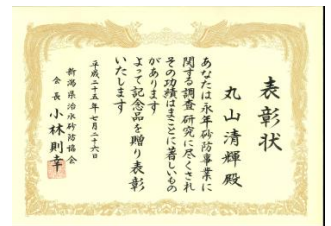 表彰状
丸山清輝殿
あなたは永年砂防事業に
関する調査研究に尽くされ
その功績はまことに著しいもの
があります
よって記念品を贈り表彰
いたします
平成二十五年七月二十六日
新潟県治水砂防協会
会長 小林則幸